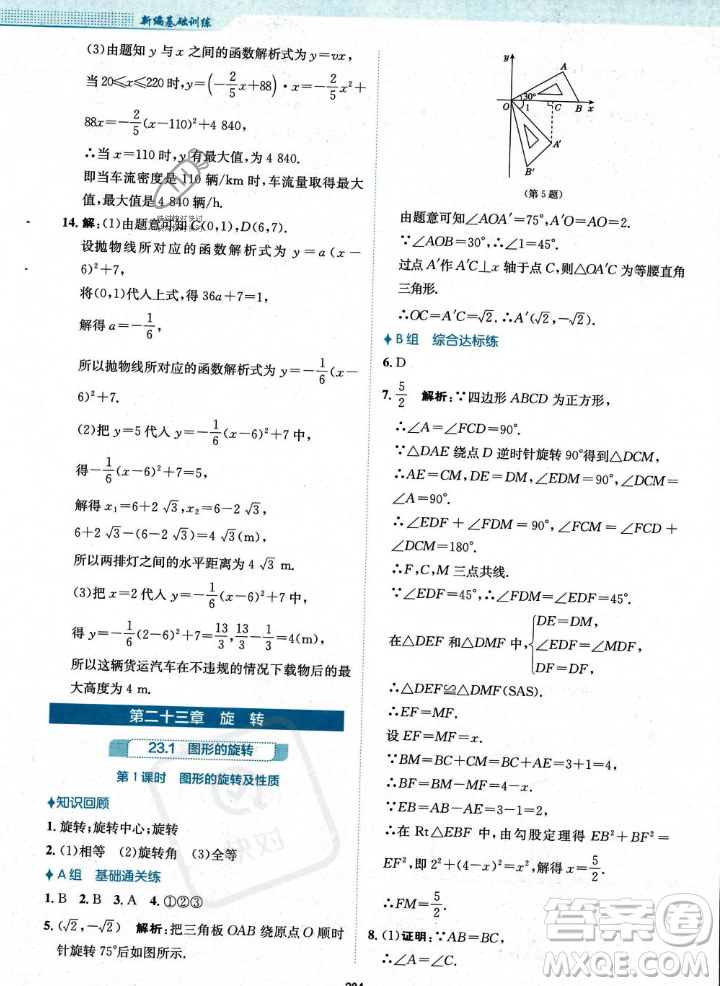 新编基础训练
(3)由题知 y 与 x 之间的函数解析式为 y=vx,
当 20≤x≤220 时,y=(-2/5x+88)·x=-2/5x²+
88x=-2/5(x-110)²+4 840.
∴当 x=110 时,y有最大值,为 4 840.
即当车流密度是 110 辆/km 时,车流量取得最
大值,最大值是 4 840 辆/h.
14.解:(1)由题意可知 C(0,1),D(6,7).
设抛物线所对应的函数解析式为 y=a(x-
6)²+7,
将(0,1)代人上式,得 36a+7=1,
解得 a=-1/6,
所以抛物线所对应的函数解析式为 y=-1/6(x-
6)²+7.
(2)把 y=5 代人 y=-1/6(x-6)²+7,
得-1/6(x-6)²+7=5,
解得 x₁=6+2√3,x₂=6-2√3,
6+2√3-(6-2√3)=4√3(m),
所以两排灯之间的水平距离为 4√3 m.
(3)把 x=2 代人 y=-1/6(x-6)²+7,
得 y=-1/6(2-6)²+7=13/3,13/3-1/3=4(m),
所以这辆货运汽车在不违规的情况下载物后的最
大高度为 4 m.
第二十三章 旋 转
23.1 图形的旋转
第1课时 图形的旋转及性质
知识回顾
1.旋转;旋转中心;旋转
2.(1)相等 (2)旋转角 (3)全等
A组 基础通关练
1.B 2.B 3.A 4.①②③
5.(√2,-√2) 解析:把三角板 OAB 绕原点 O 顺时
针旋转 75°后如图所示.
y
A
30°
O
1
C
B
x
A′
B′
(第5题)
由题意可知∠AOA′=75°,OA′=OA=2.
∵∠AOB=30°,∴∠1=45°.
过点 A′作 A′C⊥x 轴于点 C,则△OA′C 为等腰直角
三角形.
∴OC=A′C=√2. ∴A′(√2,-√2).
B组 综合达标练
6.D
7.5/2 解析:∵四边形 ABCD 为正方形,
∴∠A=∠FCD=90°.
∵△DAE 绕点 D 逆时针旋转 90°得到△DCM,
∴AE=CM,DE=DM,∠EDM=90°,∠DCM=
∠A=90°.
∴∠EDF+∠FDM=90°,∠FCD+∠DCM=180°.
∴F,C,M 三点共线.
∵∠EDF=45°,∴∠FDM=∠EDF=45°.
在△DEF 和△DMF 中,{DE=DM,
∠EDF=∠MDF,
DF=DF,
∴△DEF≌△DMF(SAS).
∴EF=MF.
设 EF=MF=x.
∵BM=BC+CM=3+1=4,
∴BF=BM-MF=4-x.
∵EB=AB-AE=3-1=2,
∴在 Rt△EBF 中,由勾股定理得 EB²+BF²=
EF²,即 2²+(4-x)²=x²,解得 x=5/2.
∴FM=5/2.
8.(1)证明:∵AB=BC,∴∠A=∠C.
快对
答案圈
MXQE.COM